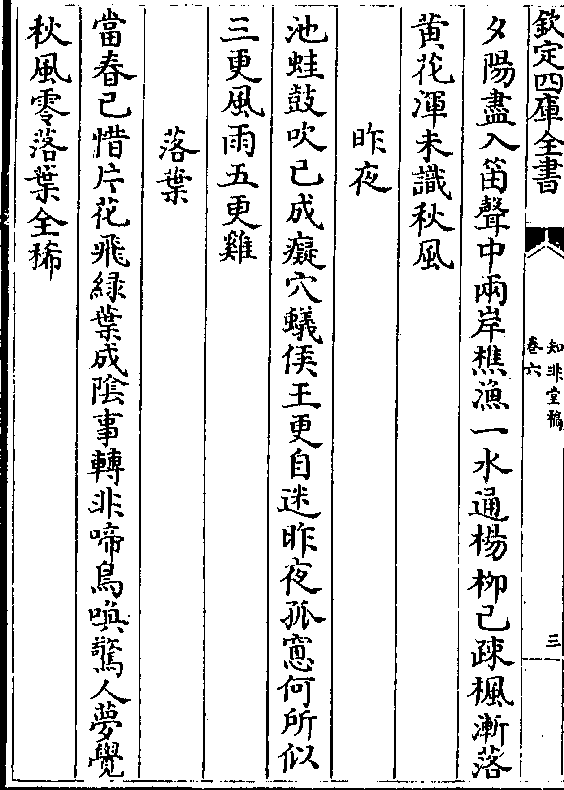 欽定四庫全書
知非堂稿
卷六
三
夕陽盡入笛聲中兩岸樵漁一水通楊柳已疎楓漸落
黄花渾未識秋風
昨夜
池蛙鼓吹已成癡穴蟻侯王更自迷昨夜孤窻何所似
三更風雨五更雞
落葉
當春已惜片花飛緑葉成陰事轉非啼鳥喚驚人夢覺
秋風零落葉全稀